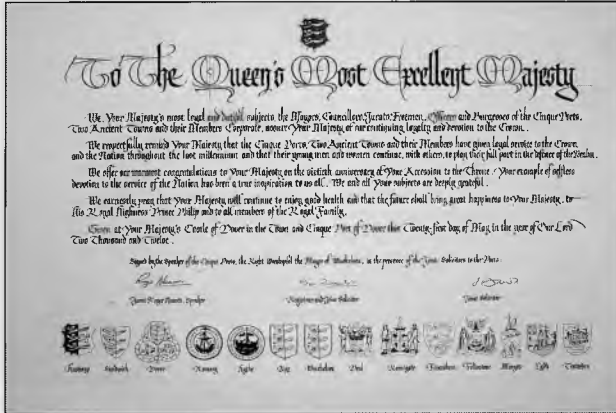 To The Queen's Most Excellent Majesty
We, Your Majesty's most loyal and dutiful subjects, the Mayors, Councillors, Jurats, Freemen, Officers and Burgesses of the Cinque Ports,
Two Ancient Towns and their Members Corporate, assure Your Majesty of our continuing loyalty and devotion to the Crown.
We respectfully remind Your Majesty that the Cinque Ports, Two Ancient Towns and their Members have given loyal service to the Crown
and the Nation throughout the last millennium and that their young men and women continue, with others, to play their full part in the defence of the Realm.
We offer our warmest congratulations to Your Majesty on the sixtieth anniversary of Your Accession to the Throne. Your example of selfless
devotion to the service of the Nation has been a true inspiration to us all. We and all Your subjects are deeply grateful.
We earnestly pray that Your Majesty will continue to enjoy good health and that the future shall bring great happiness to Your Majesty, to
His Royal Highness Prince Philip and to all members of the Royal Family.
Given at Your Majesty's Castle of Dover in the Town and Cinque Port of Dover this Twenty-first day of May in the year of Our Lord
Two Thousand and Twelve.
Signed by the Speaker of the Cinque Ports, the Right Worshipful the Mayor of in the presence of the Joint Solicitors to the Ports.
Speaker
Registrar and Joint Solicitor
Joint Solicitor
Hastings Sandwich Dover Romney Hythe Rye Winchelsea Deal Ramsgate Faversham Folkestone Margate Lydd Tenterden